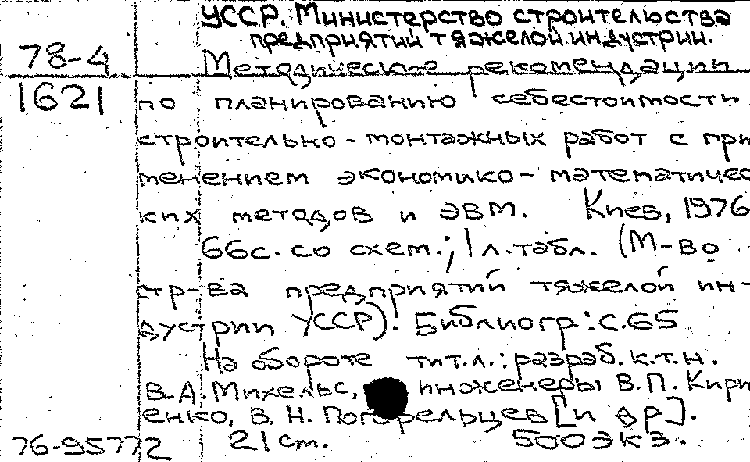 УССР. Министерство строительства
предприятий тяжелой индустрии.
78-4 Методические рекомендации
1621 по планированию себестоимости
строительно-монтажных работ с при
менением экономико-математичес
ких методов и ЭВМ. Киев, 1976
66с. со схем.; 1 л. табл. (М-во
стр-ва предприятий тяжелой ин-
дустрии УССР). Библиогр: с. 65
На обороте тит.л.: разраб. к.т.н.
В.А. Михельс, инженеры В.П. Кири
енко, В.Н. Погорельцев [и др].
76-95772 21 см. 500 экз.